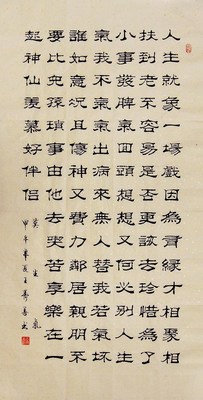 人生就象一場戲因為有緣才相聚相
扶到老不容易是否更該去珍惜為了
小事發脾氣回頭想想又何必別人生
氣我不氣氣出病來無人替我若氣坏
誰如意況且傷神又費力鄰居親朋不
要比兒孫瑣事由他去吃苦享樂在一
起神仙羨慕好伴侶
莫生氣
甲午年夏王壽